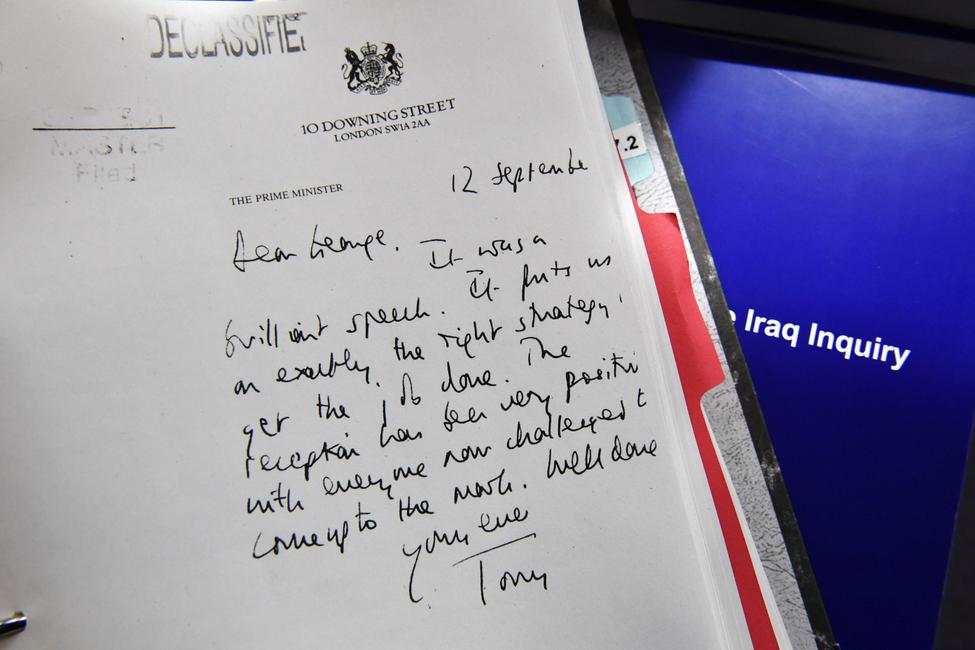 DECLASSIFIED
10 DOWNING STREET
LONDON SW1A 2AA
MASTER
Filed
THE PRIME MINISTER
12 September
Dear George. It was a
brilliant speech. It puts us
on exactly the right strategy
get the job done. The
reception has been very positive
with everyone now challenged t
come up to the mark. Well done
Yours ever
Tony
7.2
e Iraq Inquiry